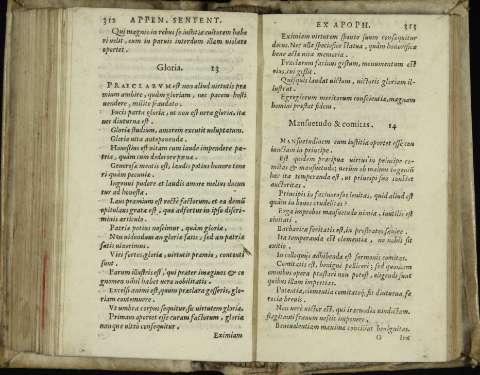 312 APPEN. SENTENT.
Qui magno in rebus se iustitiæ cultorem habe
ri velit, eum in paruis interdum illam violare
oportet.
Gloria. 13
PRAECLARVM est non aliud virtutis præ
mium ambire, quàm gloriam, nec pacem hosti
vendere, milite fraudato.
Fuci parta gloria, ut non est vera gloria, ita
nec diuturna est.
Gloriæ studium, amorem excutit voluptatum.
Gloria vita anteponenda.
Honestius est vitam cum laude impendere pa
triæ, quàm cum dedecore pane.
Generosæ mentis est, laudis potius honore tene
ri quàm pecuniæ.
Ingenui pudore et laudis amore melius ducun
tur ad honesta.
Laus præmium est rectè factorum, et ea demum
opitulatio grata est, quæ adfertur in ipso discri-
minis articulo.
Patriæ potius nascimur, quàm gloriæ.
Non videndum an gloriæ satis, sed an patriæ
satis vixerimus.
Viri fortes, gloria, virtutis præmio, contenti
sunt.
Parum illustris est, qui præter imagines & co
gnomen nihil habet veræ nobilitatis.
Excelsi animi est, quum præclara gesseris, glo-
riam contemnere.
Vt umbra corpus sequitur, sic virtutem gloria.
Primam oportet esse curam factorum, gloria
neque vltrò consequitur.
Eximiam
EX APOPH. 313
Eximiam virtutem sponte suam consequitur
decus. Nec ulla speciosior statua, quàm honorificæ
bene acta vitæ memoria.
Præclarum facinus gestum, monumentum est
eius, cui gestæ.
Quisquis laudat victum, victoris gloriam il-
lustrat.
Egregiorum meritorum conscientia, magnam
homini præstat fidem.
Mansuetudo & comitas. 14
MANsuetudinem cum iustitia oportet esse con
iunctam in principe.
Est quidem præcipua virtus in principe co-
mitas & mansuetudo; verùm ob malorum ingenia
hæc ita temperanda est, ut principi sua constet
auctoritas.
Principis in facinorosos lenitas, quid aliud est
quàm in bonos crudelitas?
Erga improbos mansuetudo nimia, inutilis est
ciuitati.
Barbaricæ feritatis est, in prostratos sæuire.
Ita temperanda est clementia, ne nobis sit
exitio.
In colloquijs adhibenda est sermonis comitas.
Comitatis est, benignè polliceri; sed quoniam
omnibus opera præstari non potest, eligendi sunt
quibus illam impertias.
Potentia, clementia comitatæque, sit diuturna, se-
cura breuis.
Non verè victor est, qui iracundia vindictam
flagitanti frænum nescit imponere.
Beneuolentiam maximè conciliat benignitas.
O Iræ